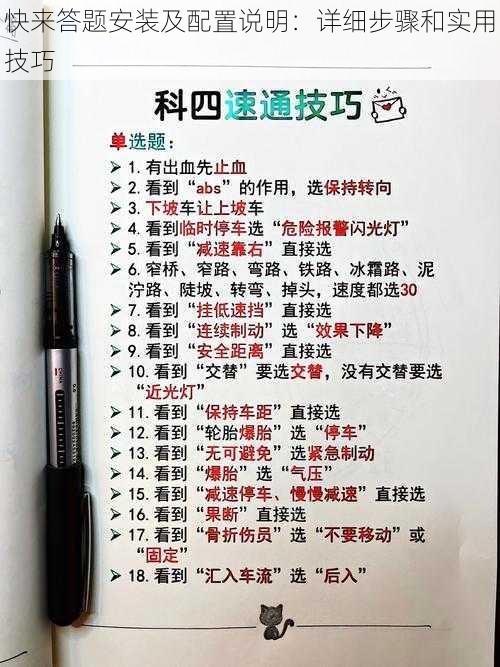 快来答题安装及配置说明：详细步骤和实用
技巧
科四速通技巧
单选题：
➤ 1. 有出血先止血
➤ 2. 看到“abs”的作用，选保持转向
➤ 3. 下坡车让上坡车
➤ 4. 看到临时停车选“危险报警闪光灯”
➤ 5. 看到“减速靠右”直接选
➤ 6. 窄桥、窄路、弯路、铁路、冰霜路、泥
泞路、陡坡、转弯、掉头，速度都选30
➤ 7. 看到“挂低速挡”直接选
➤ 8. 看到“连续制动”选“效果下降”
➤ 9. 看到“安全距离”直接选
➤ 10. 看到“交替”要选交替，没有交替要选
“近光灯”
➤ 11. 看到“保持车距”直接选
➤ 12. 看到“轮胎爆胎”选“停车”
➤ 13. 看到“无可避免”选紧急制动
➤ 14. 看到“爆胎”选“气压”
➤ 15. 看到“减速停车、慢慢减速”直接选
➤ 16. 看到“果断”直接选
➤ 17. 看到“骨折伤员”选“不要移动”或
“固定”
➤ 18. 看到“汇入车流”选“后入”